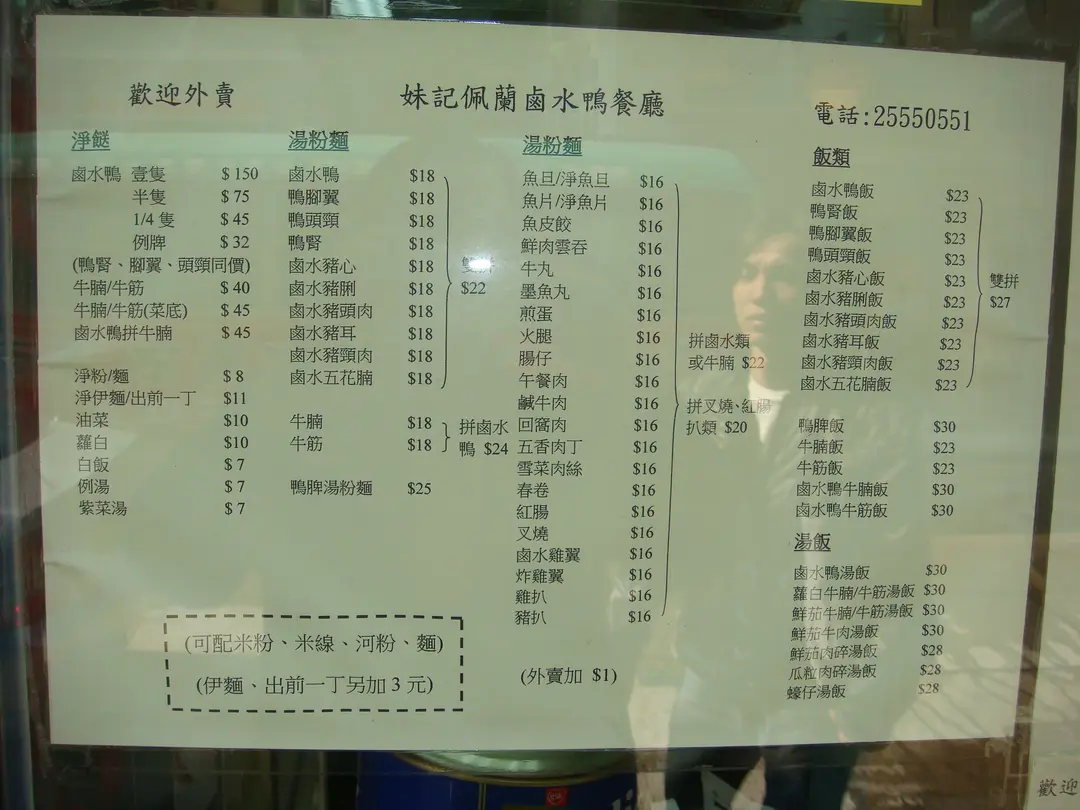 歡迎外賣
妹記佩蘭鹵水鴨餐廳
電話:25550551
淨餸
鹵水鴨 壹隻 $150
半隻 $75
1/4 隻 $45
例牌 $32
(鴨腎、腳翼、頭頸同價)
牛腩/牛筋 $40
牛腩/牛筋(菜底) $45
鹵水鴨拼牛腩 $45
淨粉/麵 $8
淨伊麵/出前一丁 $11
油菜 $10
蘿白 $10
白飯 $7
例湯 $7
紫菜湯 $7
湯粉麵
鹵水鴨 $18
鴨腳翼 $18
鴨頭頸 $18
鴨腎 $18
鹵水豬心 $18
鹵水豬脷 $18
鹵水豬頭肉 $18
鹵水豬耳 $18
鹵水豬頸肉 $18
鹵水五花腩 $18
雙拼
$22
牛腩 $18
牛筋 $18
拼鹵水
鴨 $24
鴨脾湯粉麵 $25
湯粉麵
魚旦/淨魚旦 $16
魚片/淨魚片 $16
魚皮餃 $16
鮮肉雲吞 $16
牛丸 $16
墨魚丸 $16
煎蛋 $16
火腿 $16
腸仔 $16
午餐肉 $16
鹹牛肉 $16
回窩肉 $16
五香肉丁 $16
雪菜肉絲 $16
春卷 $16
紅腸 $16
叉燒 $16
鹵水雞翼 $16
炸雞翼 $16
雞扒 $16
豬扒 $16
拼鹵水類
或牛腩 $22
拼叉燒、紅腸
扒類 $20
(外賣加 $1)
飯類
鹵水鴨飯 $23
鴨腎飯 $23
鴨腳翼飯 $23
鴨頭頸飯 $23
鹵水豬心飯 $23
鹵水豬脷飯 $23
鹵水豬頭肉飯 $23
鹵水豬耳飯 $23
鹵水豬頸肉飯 $23
鹵水五花腩飯 $23
雙拼
$27
鴨脾飯 $30
牛腩飯 $23
牛筋飯 $23
鹵水鴨牛腩飯 $30
鹵水鴨牛筋飯 $30
湯飯
鹵水鴨湯飯 $30
蘿白牛腩/牛筋湯飯 $30
鮮茄牛腩/牛筋湯飯 $30
鮮茄牛肉湯飯 $30
鮮茄肉碎湯飯 $28
瓜粒肉碎湯飯 $28
蠔仔湯飯 $28
(可配米粉、米線、河粉、麵)
(伊麵、出前一丁另加 3 元)
歡迎